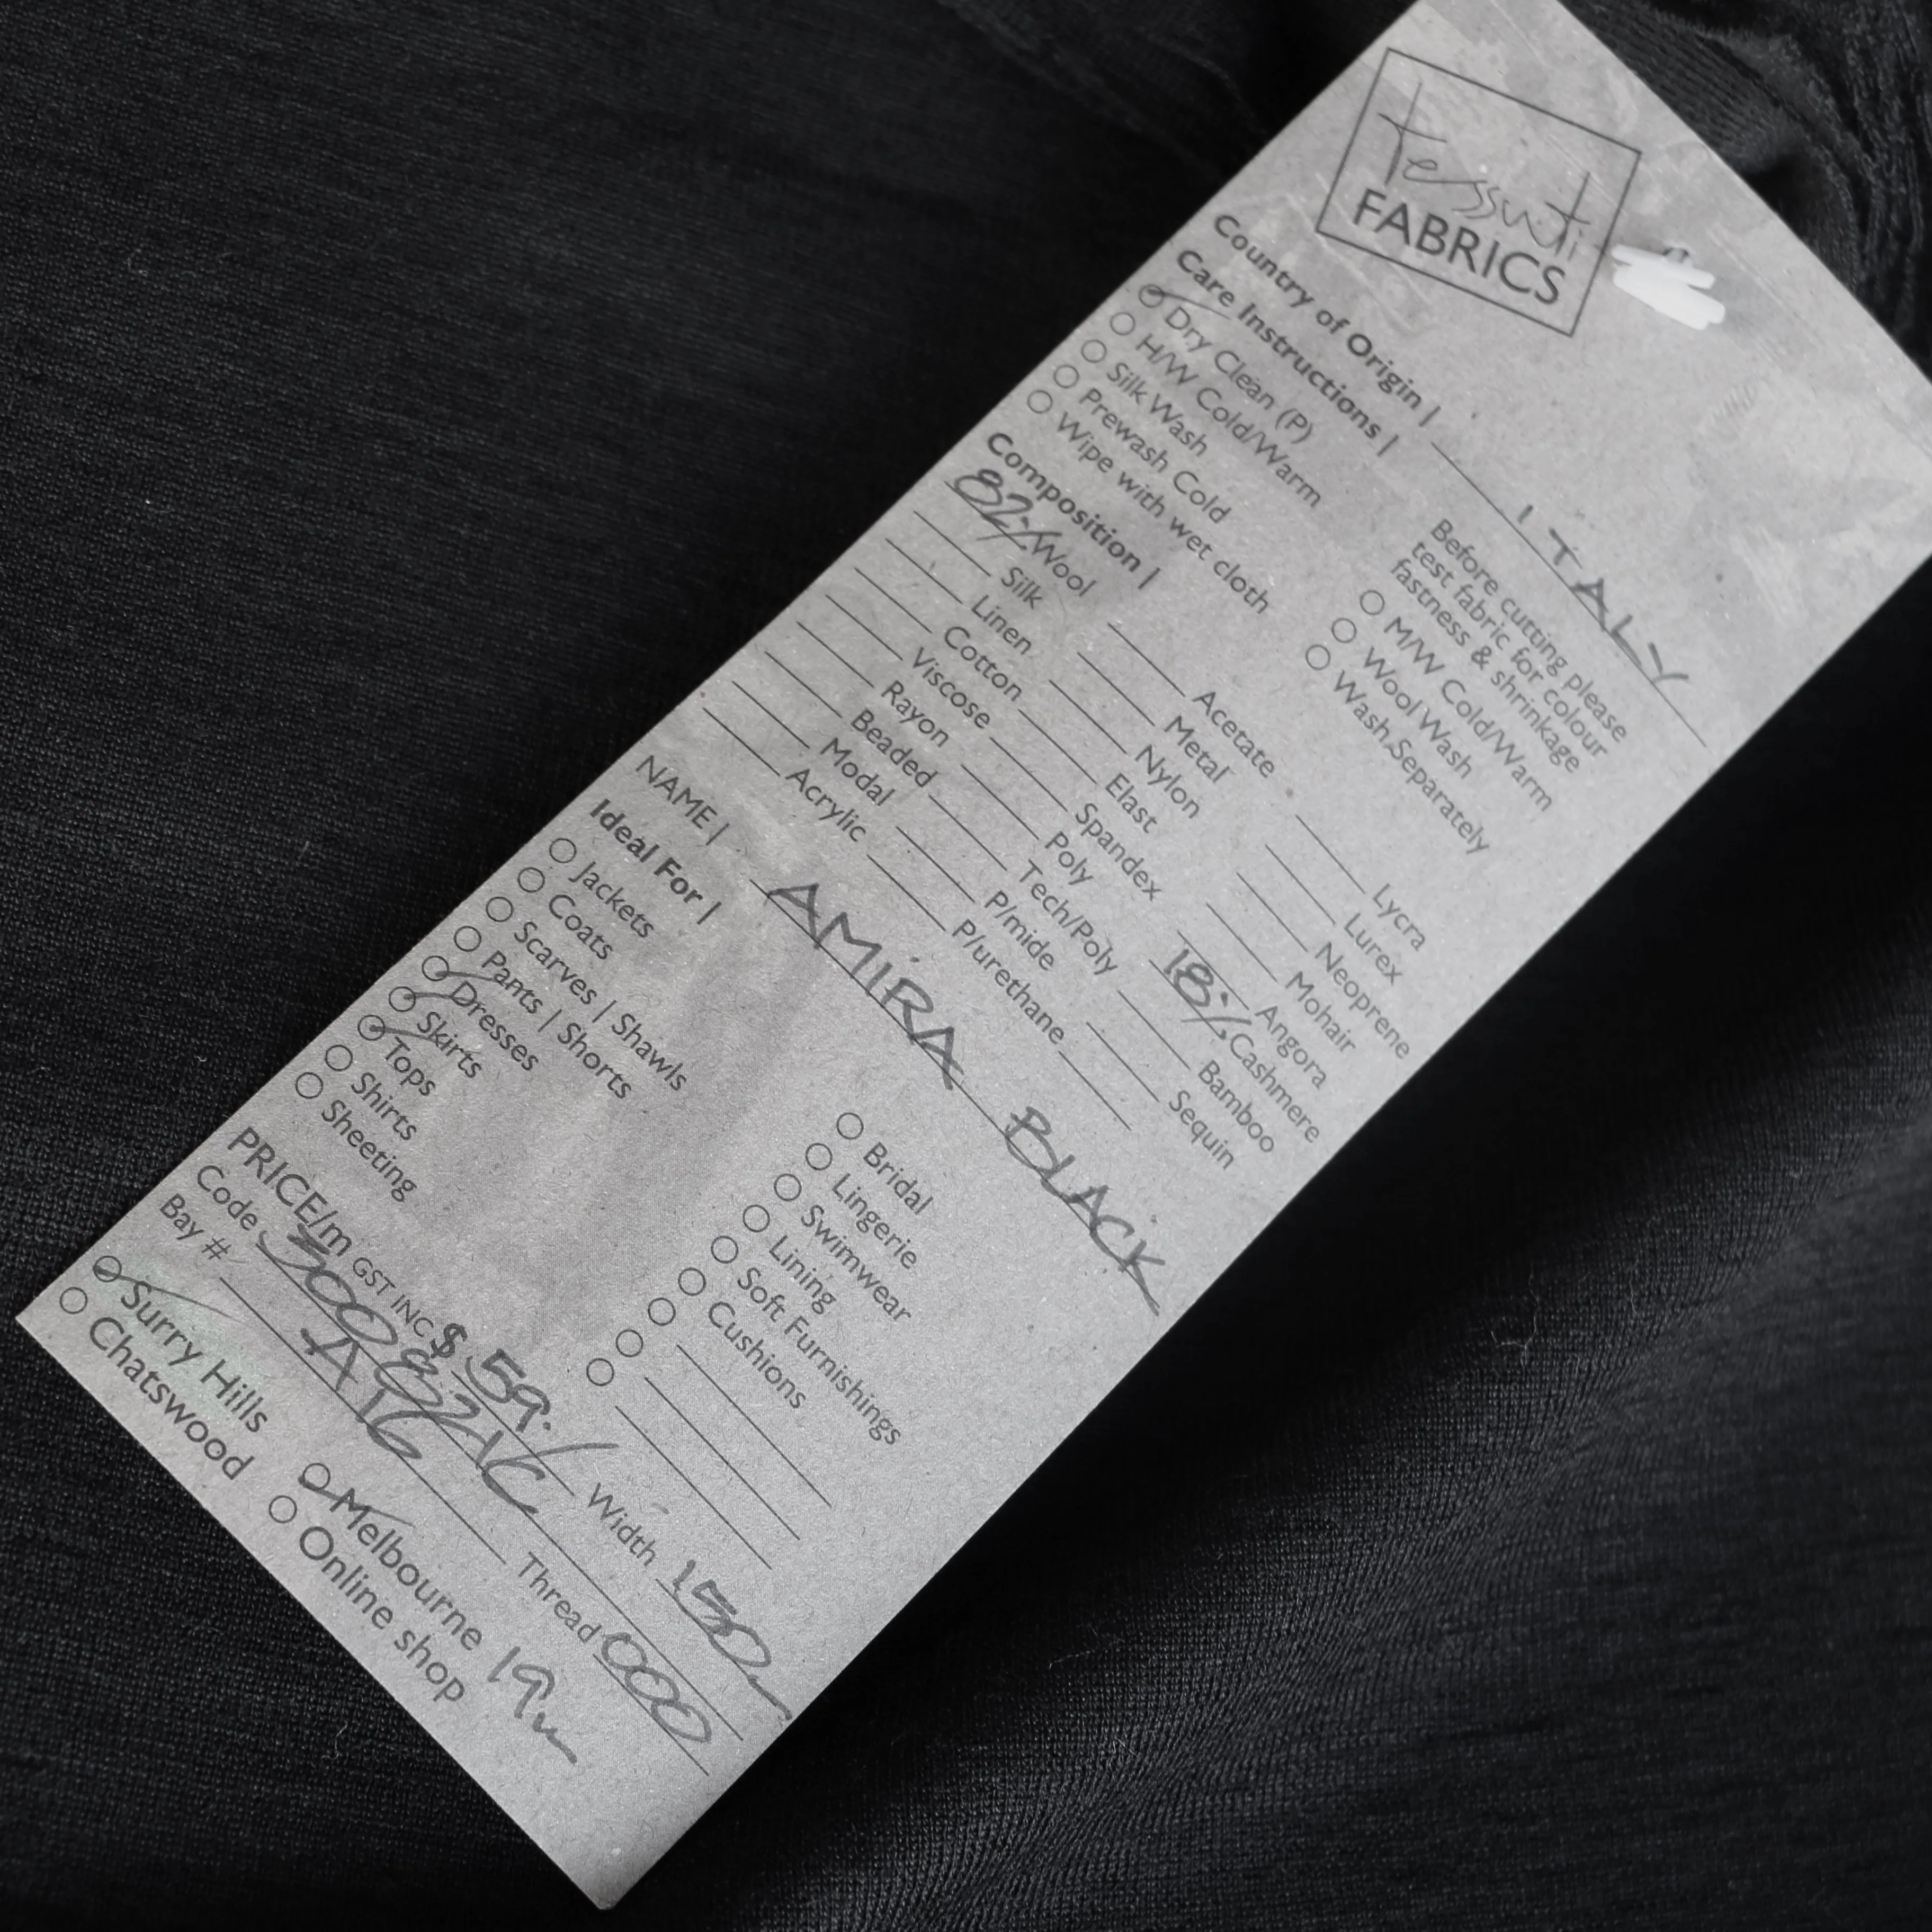 tessuti
FABRICS
Country of Origin | ITALY
Care Instructions |
Before cutting please
test fabric for colour
fastness & shrinkage
Dry Clean (P)
H/W Cold/Warm
Silk Wash
Prewash Cold
Wipe with wet cloth
M/W Cold/Warm
Wool Wash
Wash Separately
Composition |
82% Wool
Silk
Linen
Cotton
Viscose
Rayon
Beaded
Modal
Acrylic
Acetate
Metal
Nylon
Elast
Spandex
Poly
Tech/Poly
P/mide
P/urethane
Lycra
Lurex
Neoprene
Mohair
Angora
18% Cashmere
Bamboo
Sequin
NAME | AMIRA BLACK
Ideal For |
Jackets
Coats
Scarves | Shawls
Pants | Shorts
Dresses
Skirts
Tops
Shirts
Sheeting
Bridal
Lingerie
Swimwear
Lining
Soft Furnishings
Cushions
PRICE/m GST INC $ 59. Width 150
Code Thread 000
Bay # A16
Surry Hills
Chatswood
Melbourne 19m
Online shop